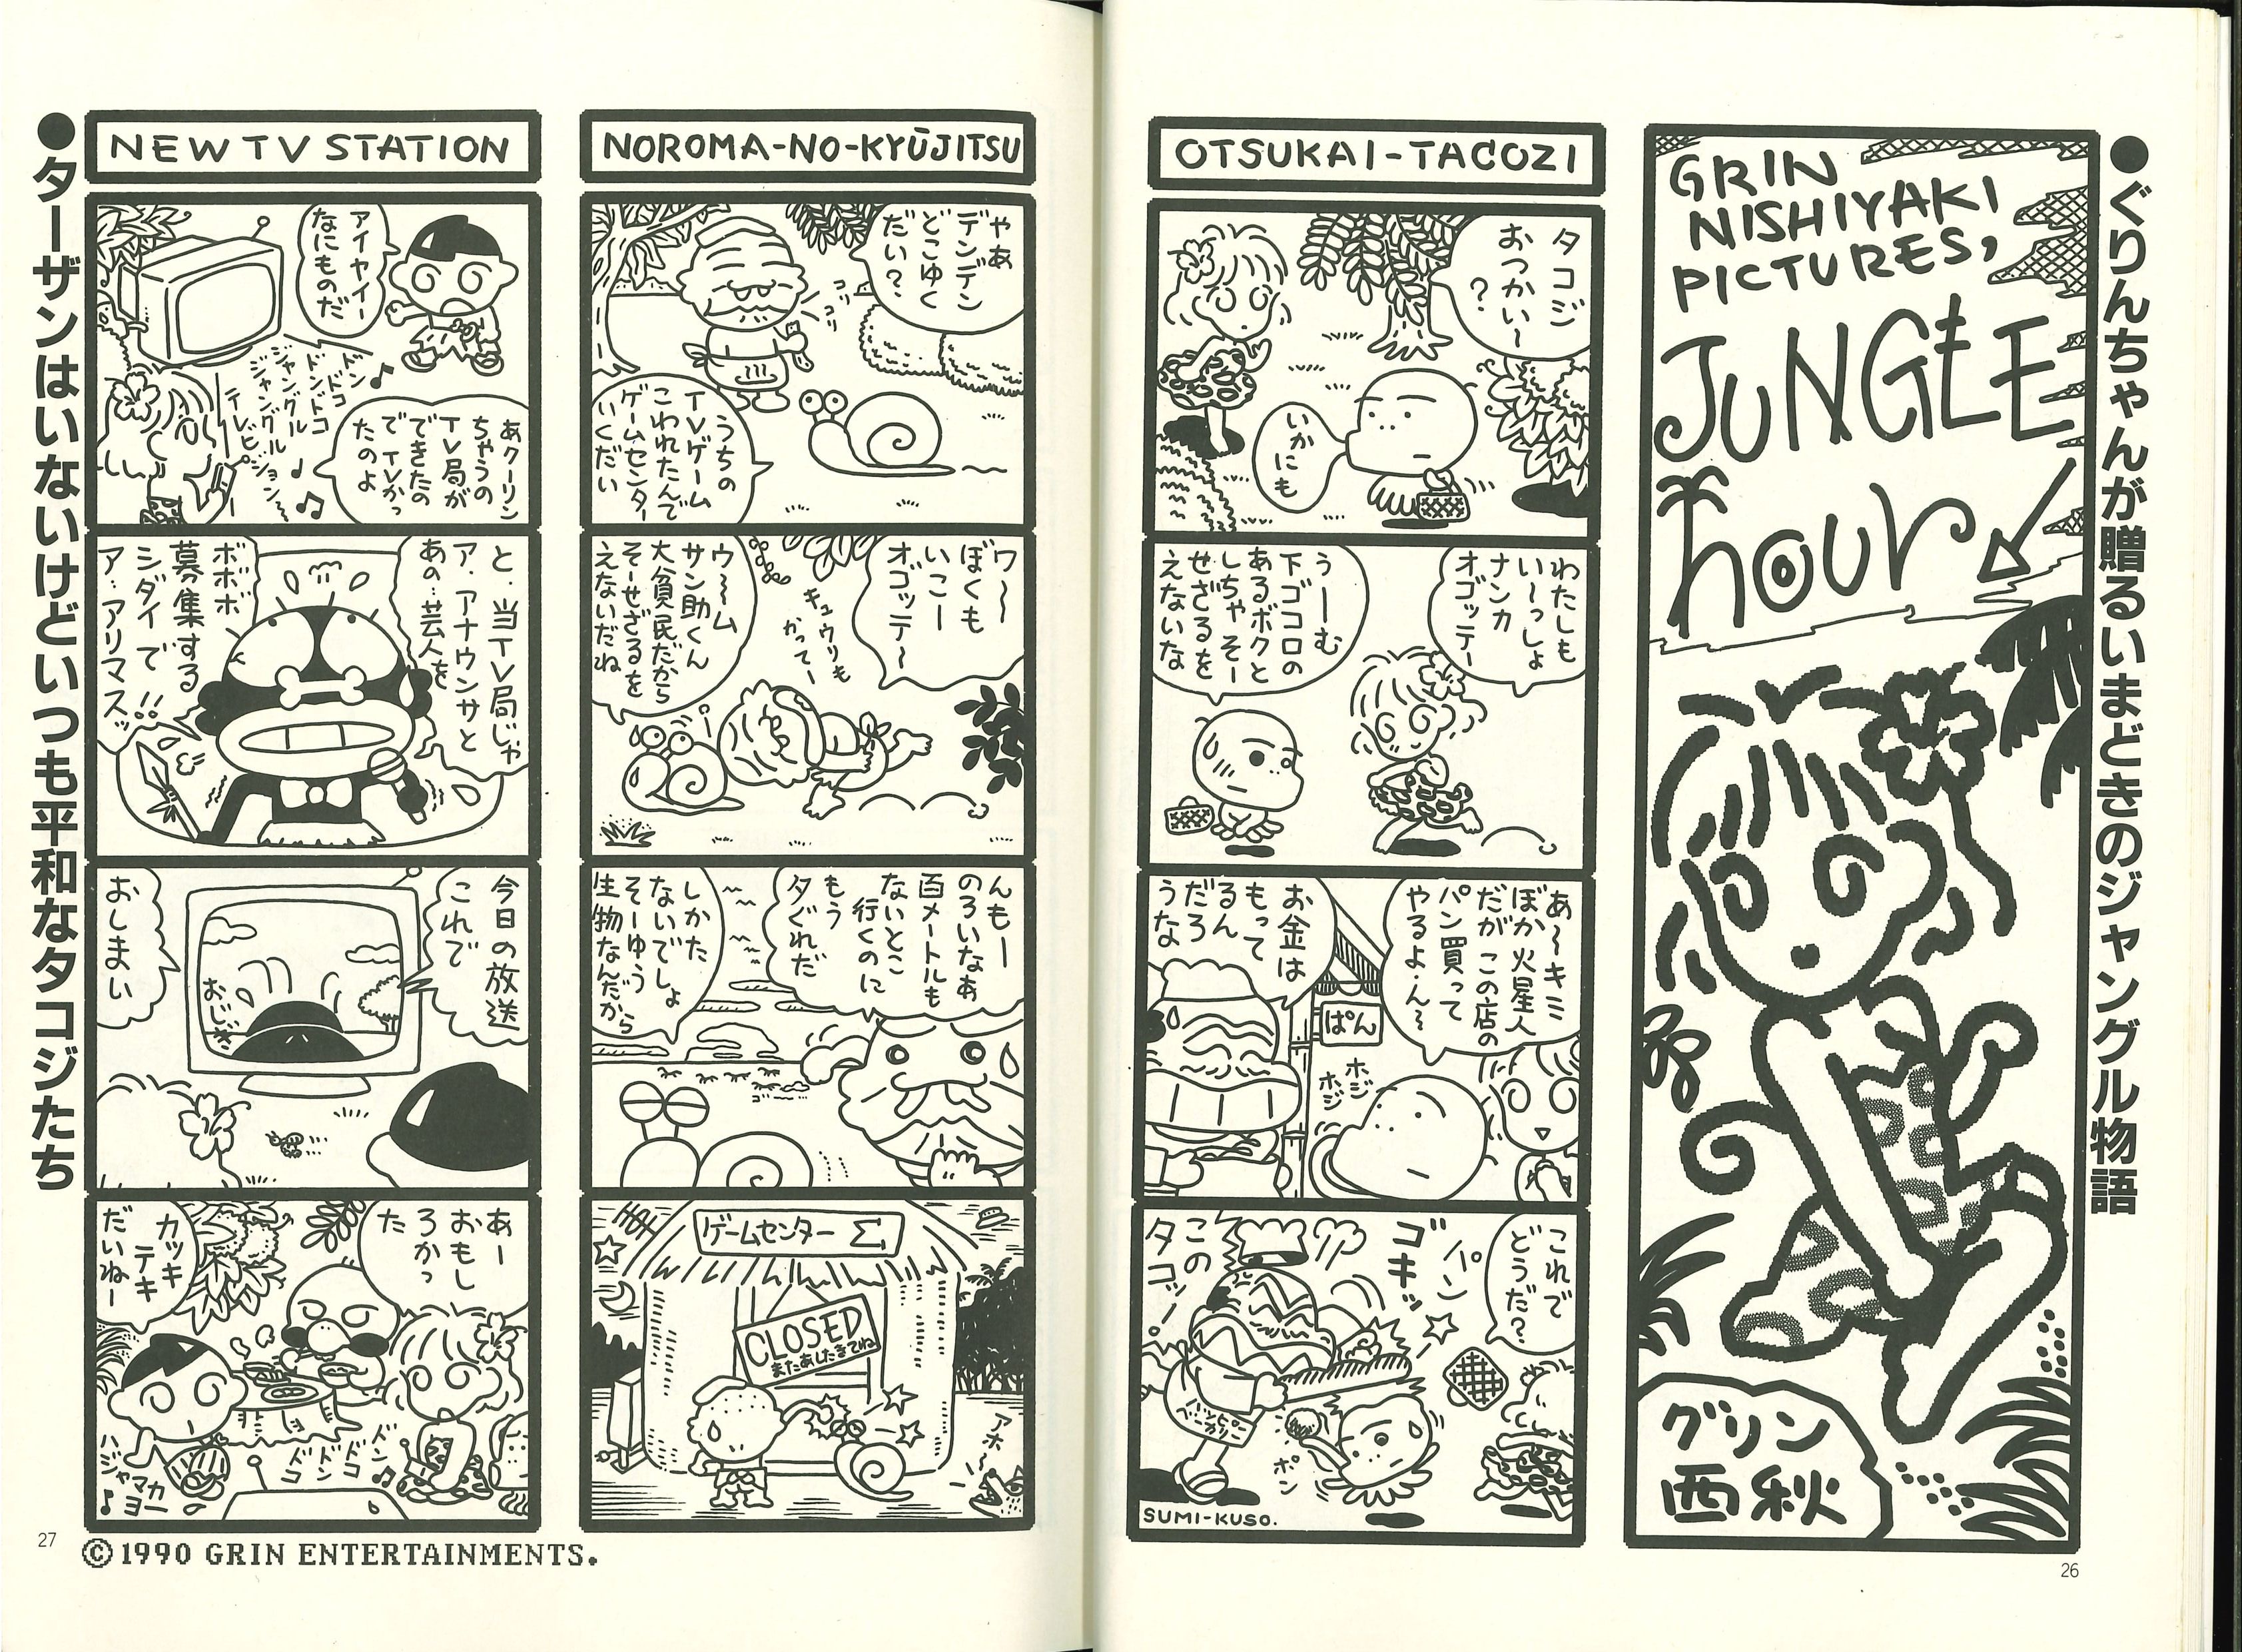 ●ぐりんちゃんが贈るいまどきのジャングル物語
GRIN
NISHIYAKI
PICTURES,
JUNGLE
hour
グリン
西秋
OTSUKAI-TACOZI
タコジ
おつかい〜
?
いかにも
わたしも
い〜っしょ
ナンカ
オゴッテー
うーむ
下ゴコロの
あるボクと
しちゃそー
せざるを
えないな
あ〜キミ
ぼか火星人
だがこの店の
パン買って
やるよ・ん〜
お金は
もって
るん
だろ
うな
ぱん
ホジ
ホジ
これで
どうだ?
パン
ゴキッ
この
タコッ
ポン
SUMI-KUSO.
26
NOROMA-NO-KYŪJITSU
やあ
デンデン
どこゆく
だい?
コリ
コリ
うちの
TVゲーム
こわれたんで
ゲームセンター
いくだい
ワ〜
ぼくも
いこー
オゴッテ〜
キュウリも
かってー
ウ〜ム
サン助くん
大貧民だから
そーせざるを
えないだね
んもー
のろいなあ
百メートルも
ないとこ
行くのに
もう
夕ぐれだ
しかた
ないでしょ
そーゆう
生物なんだから
ゲームセンター Σ
CLOSED
またあしたきてね
アホ〜
NEW TV STATION
アイヤイー
なにものだ
ドン
ドドコ
ドンドコ
ジャングル
ジャングル
テレビジョン
あクーリン
ちゃうの
TV局が
できたの
で TVかっ
たのよ
と、当TV局じゃ
ア、アナウンサと
あの…芸人を
ボボボ
募集する
シダイで!!
ア…アリマスッ
今日の放送
これで
おじぎ
おしまい
あー
おもし
ろかっ
た
カッキ
テキ
だいねー
ドン
ドコ
ドン
ドコ
ハ
ジャマカ
ヨー
●ターザンはいないけどいつも平和なタコジたち
27
©1990 GRIN ENTERTAINMENTS.